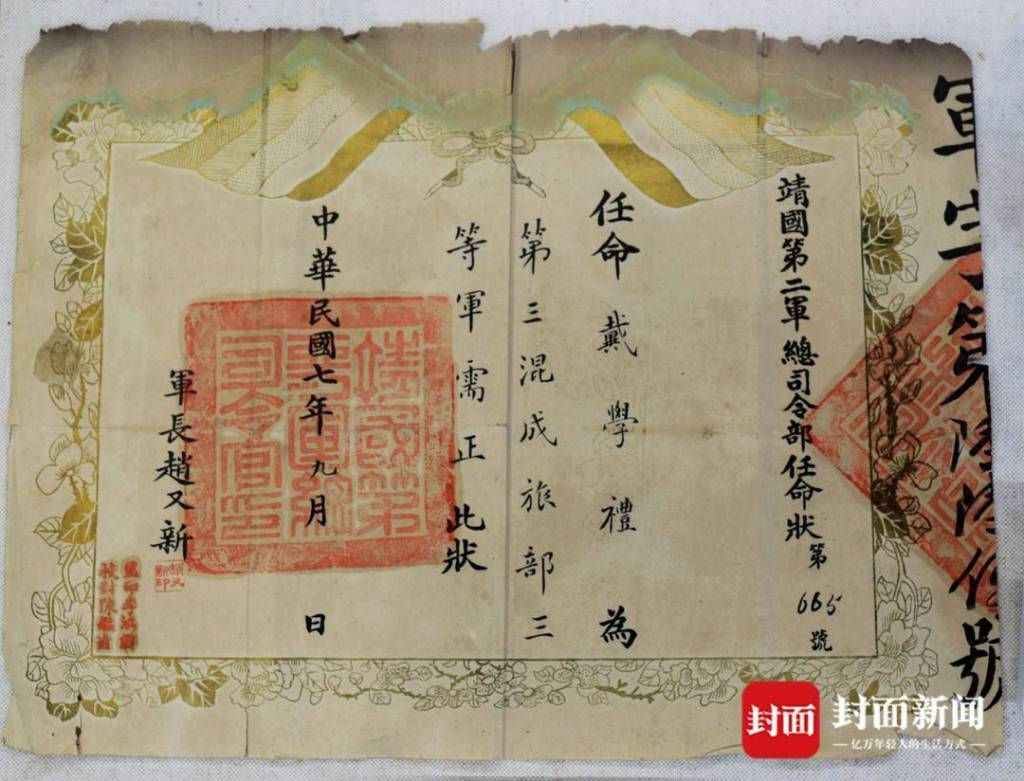 軍字第陸陸伍號
靖國第二軍總司令部任命狀第665號
任命戴學禮為
第三混成旅部三
等軍需正此狀
中華民國七年九月 日
靖國第
軍總
司令官印
軍長趙又新
趙又
新印
監印李
校對陳
封面
封面新闻
亿万年轻人的生活方式